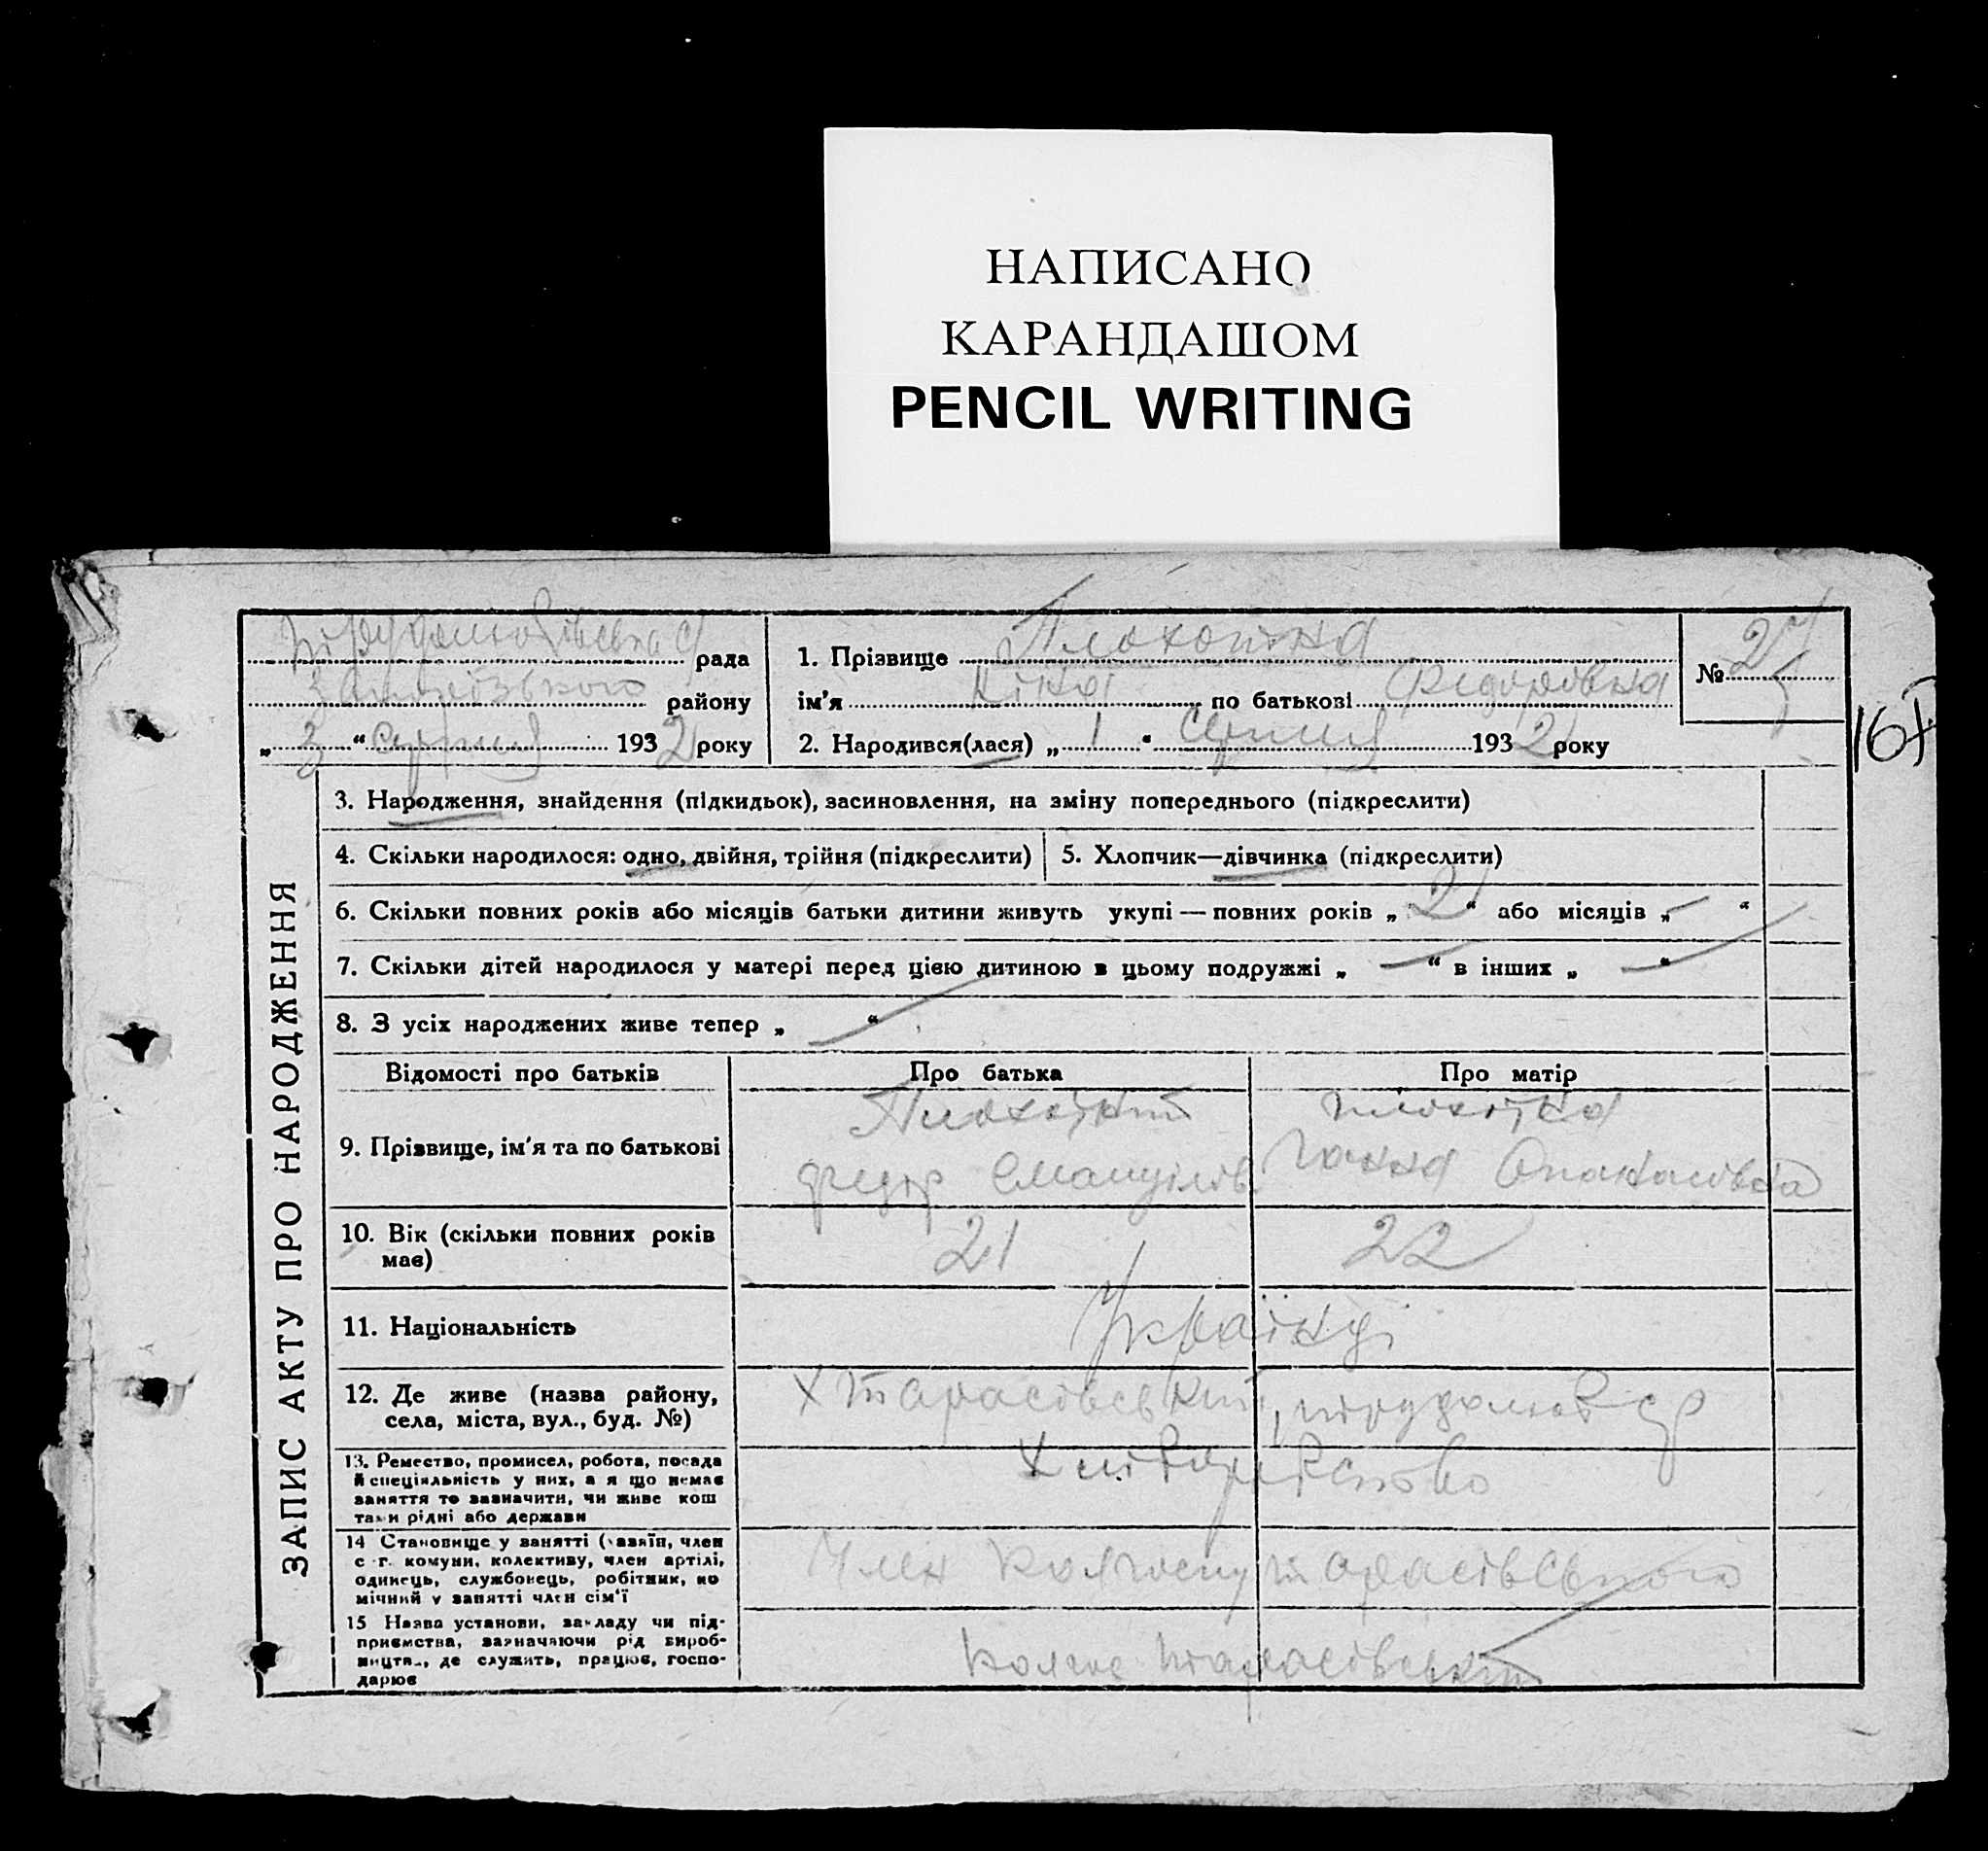 НАПИСАНО
КАРАНДАШОМ
PENCIL WRITING
рада
району
„ 3 “ Серпня 1932 року
1. Прізвище
№ 27
ім'я Ніна по батькові Федоровна
2. Народився(лася) „ 1 “ Серпня 1932 року
167
ЗАПИС АКТУ ПРО НАРОДЖЕННЯ
3. Народження, знайдення (підкидьок), засиновлення, на зміну попереднього (підкреслити)
4. Скільки народилося: одно, двійня, трійня (підкреслити)
5. Хлопчик—дівчинка (підкреслити)
6. Скільки повних років або місяців батьки дитини живуть укупі — повних років „ 2 “ або місяців „ — “
7. Скільки дітей народилося у матері перед цією дитиною в цьому подружжі „ — “ в інших „ — “
8. З усіх народжених живе тепер „ — “
Відомості про батьків
Про батька
Про матір
9. Прізвище, ім'я та по батькові
Федір
Ганна Опанасівна
10. Вік (скільки повних років
має)
21
22
11. Національність
Українці
12. Де живе (назва району,
села, міста, вул., буд. №)
х Тарасівський, трудолюб ср
13. Ремество, промисел, робота, посада
й спеціяльність у них, а я що немає
заняття то зазначити, чи живе кош
тами рідні або держави
Хліборобство
14 Становище у занятті (хазяїн, член
с.-г. комуни, колективу, член артілі,
одинець, службовець, робітник, по
мічний у занятті член сім'ї
Член колгоспу Тарасівського
15 Назва установи, закладу чи під-
приємства, зазначаючи рід вироб-
ництва, де служить, працює, госпо-
дарює
Колгос Тарасівський